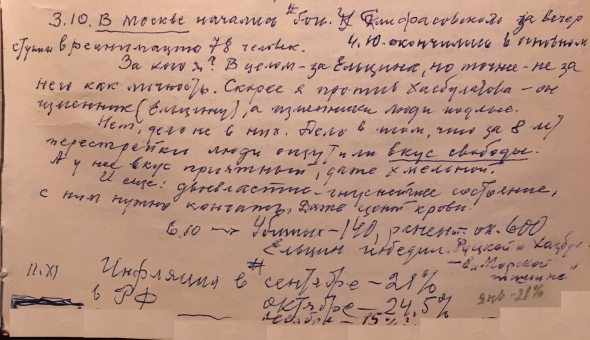 3.10. В Москве начались # бои. У Склифасовского за вечер
в реанимацию 78 человек. 4.10. окончились в основном
За кого я? В целом - за Ельцина, но точнее - не за
него как личность. Скорее я против Хасбулатова - он
изменник (Ельцину), а изменники люди подлые.
Нет, дело не в них. Дело в том, что за 8 лет
перестройки люди ощутили вкус свободы.
А у нее вкус приятный, даже хмельной.
И еще: двоевластие - гнуснейшее состояние,
с ним нужно кончать. Даже ценой крови.
6.10 → Убитых - 140, ранен. ок. 600
Ельцин победил. Руцкой и Хасбул.
- в "Морской тишине"
11.XI Инфляция в # сентябре - 21%
в РФ октябре - 24,5%
янв - 21%
ноябре - 15%